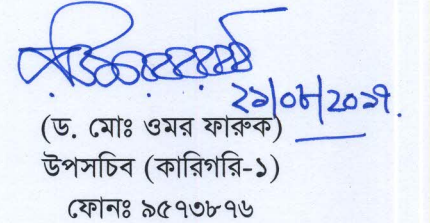 ২১/০৮/২০১৭.
(ড. মোঃ ওমর ফারুক)
উপসচিব (কারিগরি-১)
ফোনঃ ৯৫৭৩৮৭৬